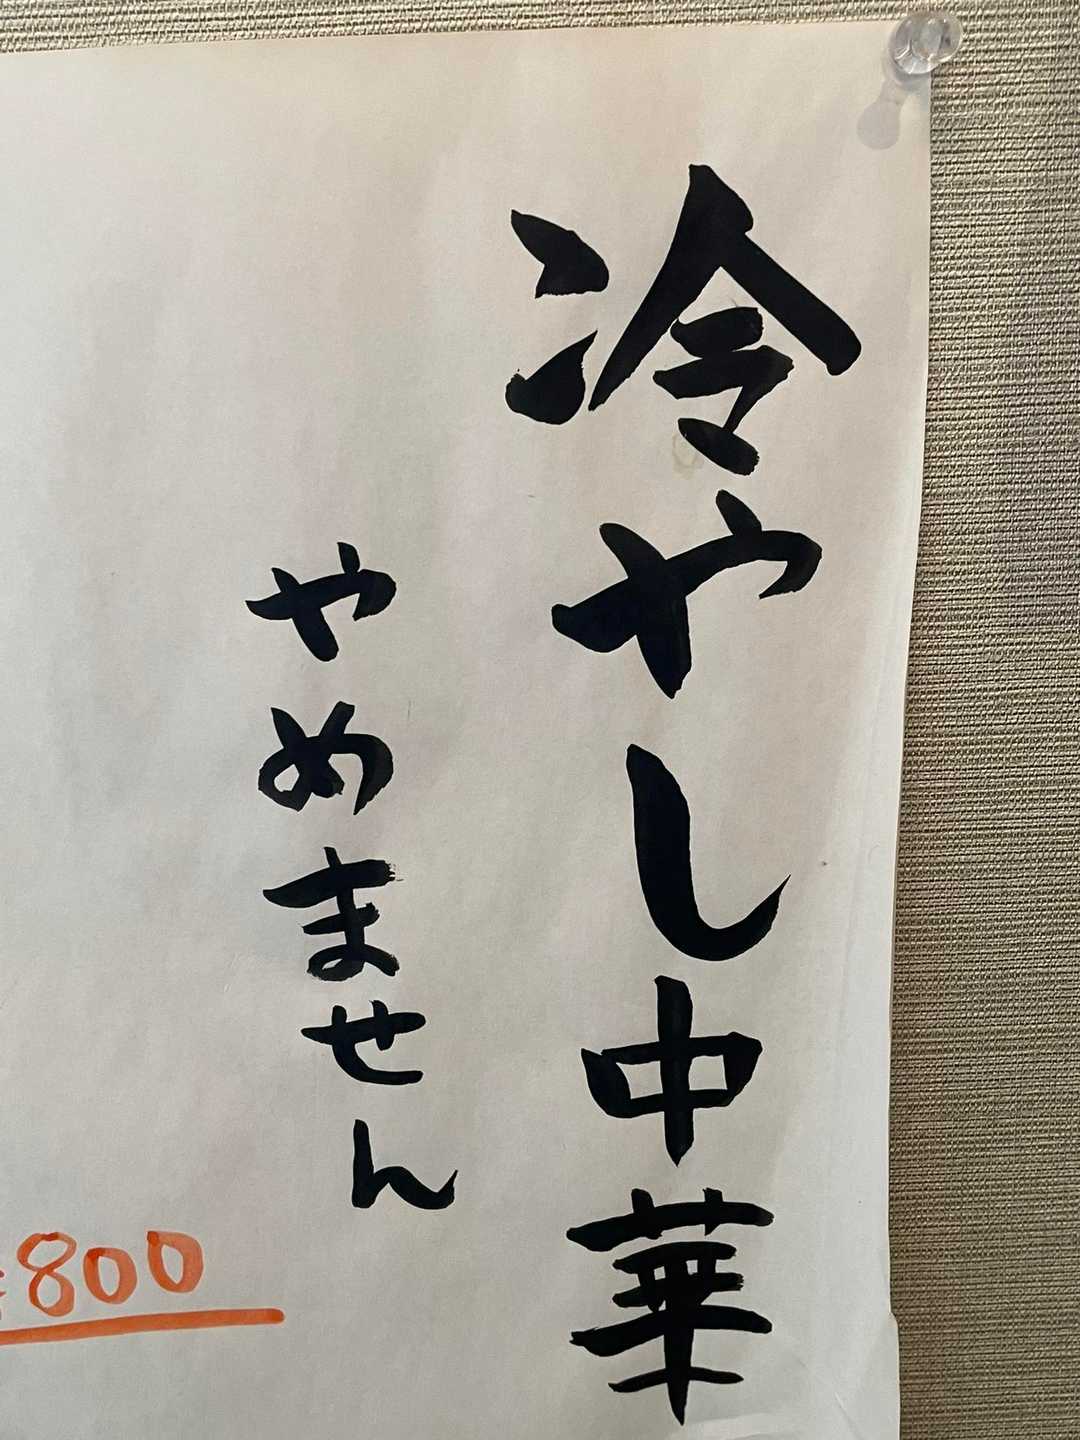 冷やし中華
やめません
¥800